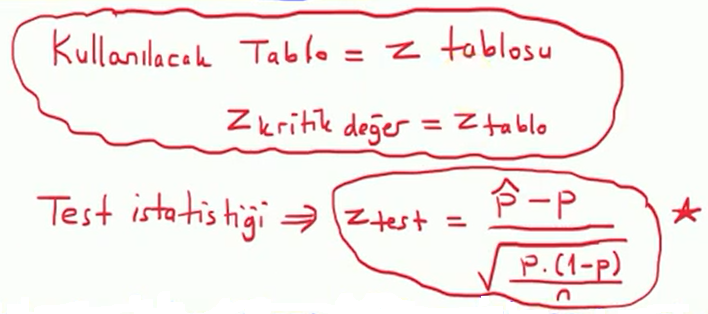 Kullanılacak Tablo = Z tablosu
Z kritik değer = Z tablo
Test istatistiği ⇒ Z test = (p̂ - p) / √(p.(1-p)/n) ★